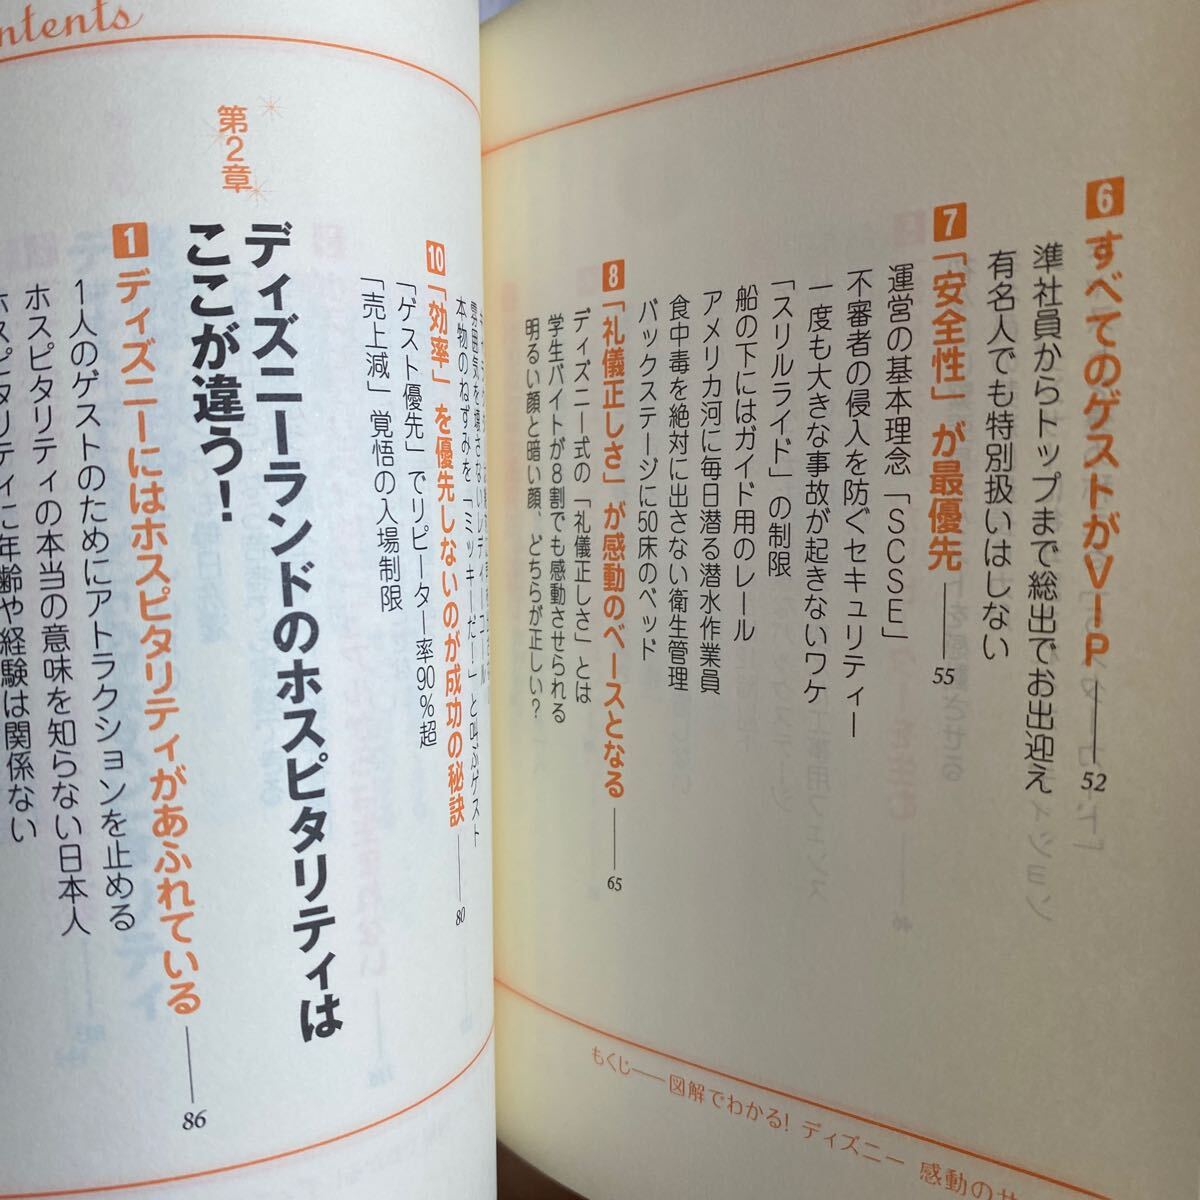 6 すべてのゲストがVIP 52
準社員からトップまで総出でお出迎え
有名人でも特別扱いはしない
7 「安全性」が最優先 55
運営の基本理念「SCSE」
不審者の侵入を防ぐセキュリティー
一度も大きな事故が起きないワケ
「スリルライド」の制限
船の下にはガイド用のレール
アメリカ河に毎日潜る潜水作業員
食中毒を絶対に出さない衛生管理
バックステージに50床のベッド
8 「礼儀正しさ」が感動のベースとなる 65
ディズニー式の「礼儀正しさ」とは
学生バイトが8割でも感動させられる
明るい顔と暗い顔、どちらが正しい?
もくじ――図解でわかる! ディズニー 感動の
本物のねずみを「ミッキーだ!」と叫ぶゲスト
10 「効率」を優先しないのが成功の秘訣 80
「ゲスト優先」でリピーター率90%超
「売上減」覚悟の入場制限
第2章
ディズニーランドのホスピタリティは
ここが違う!
1 ディズニーにはホスピタリティがあふれている 86
1人のゲストのためにアトラクションを止める
ホスピタリティの本当の意味を知らない日本人
ホスピタリティに年齢や経験は関係ない